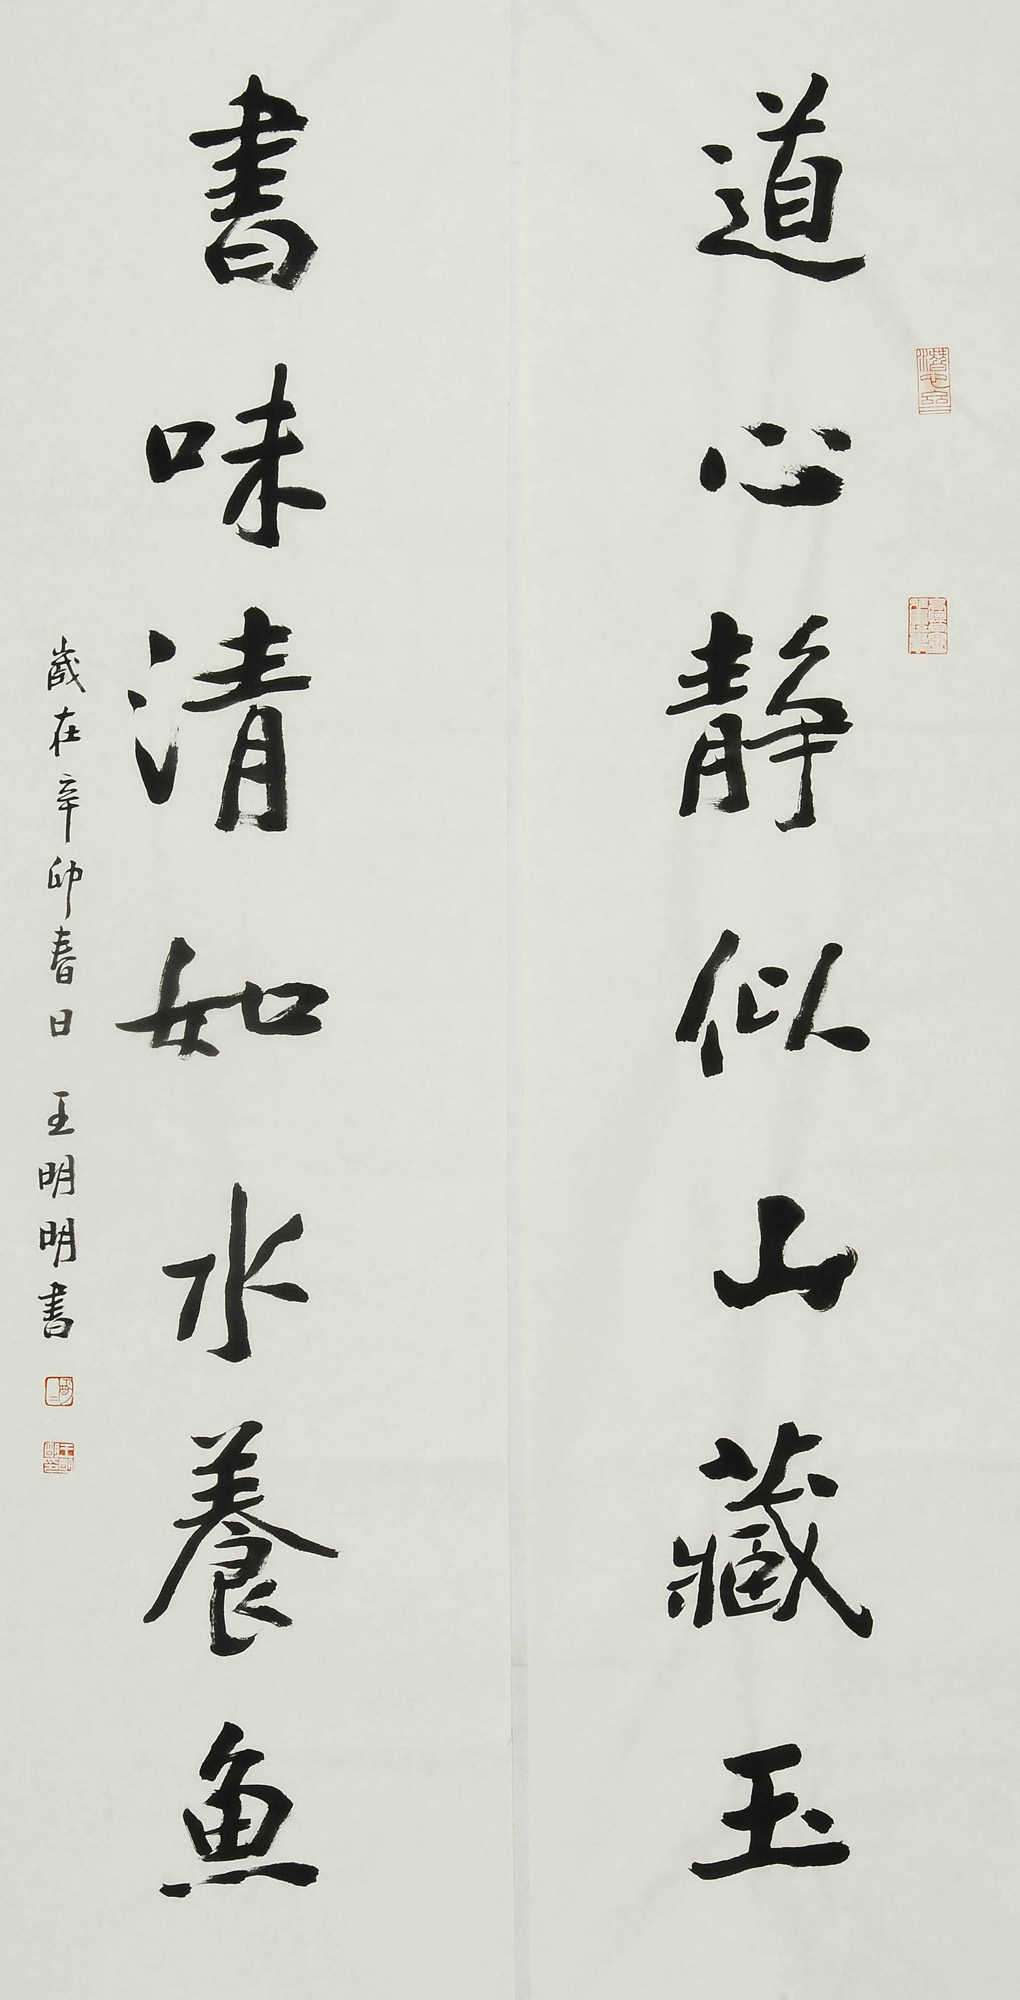 道心静似山藏玉
書味清如水養魚
歲在辛卯春日 王明明書